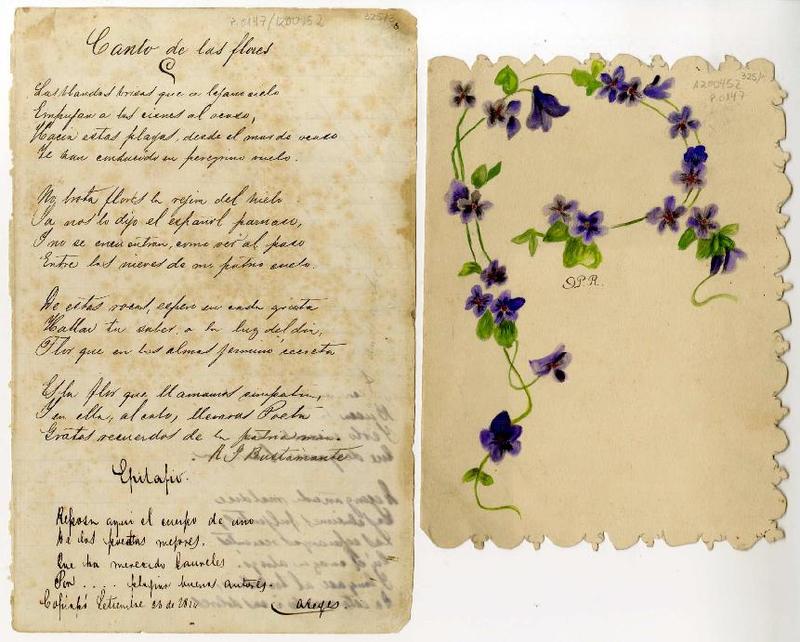 P.0147/A200452
325/5
Canto de las flores
Las blandas brisas que a lejano suelo
Empujan a las cienes al ocaso,
Hacia estas playas, desde el mundo ocaso
Te han conducido en peregrino vuelo.
No brota flores la rejion del hielo
Ya nos lo dijo el español parnaso,
I no se encuentran, como ves al paso
Entre las nieves de mi patrio suelo.
De estas rocas, espero en cada grieta
Hallar tu saber, a la luz del dia,
Flor que en las almas jerminó secreta
Es la flor que llamamos simpatia,
I en ella, al cabo, llevaras Poeta
Gratos recuerdos de la patria mia.
R. J Bustamante
Epitafio.
Reposa aqui el cuerpo de uno
De los poetas mejores.
Que ha merecido laureles
Por .... plajiar buenos autores.
Copiapó Setiembre 23 de
AReyes.
325/
A200452
P.0147
P.R.